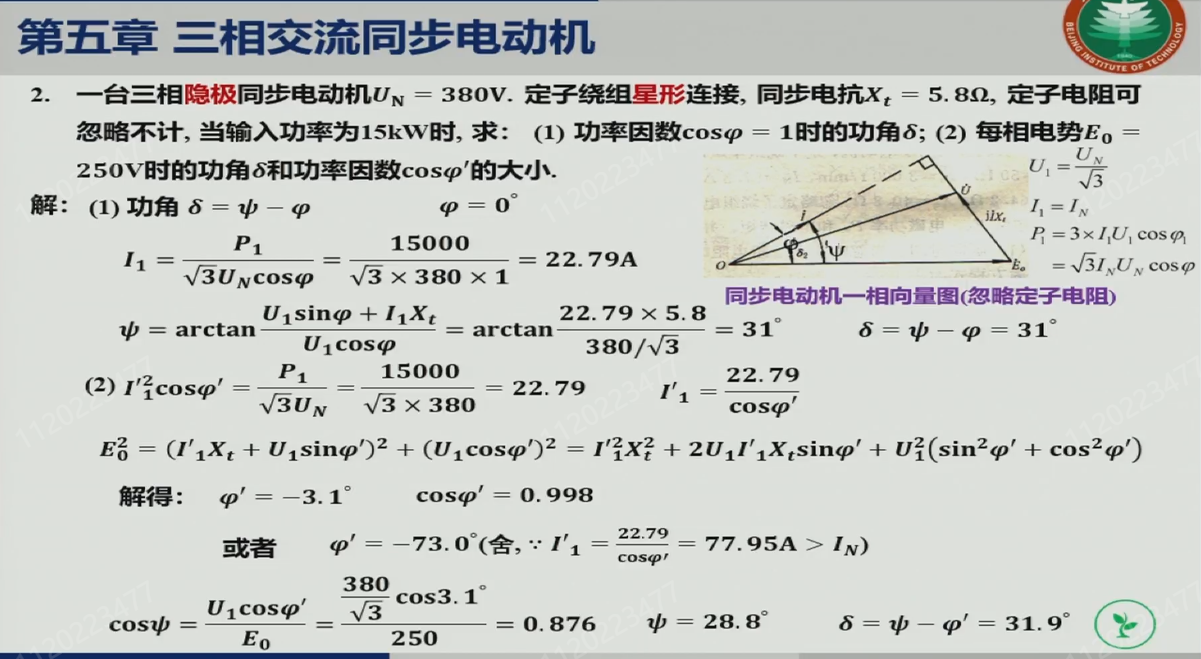 第五章 三相交流同步电动机
BEIJING INSTITUTE OF TECHNOLOGY
2. 一台三相隐极同步电动机U_N = 380V. 定子绕组星形连接, 同步电抗X_t = 5.8Ω, 定子电阻可
忽略不计, 当输入功率为15kW时, 求: (1) 功率因数cosφ = 1时的功角δ; (2) 每相电势E_0 =
250V时的功角δ和功率因数cosφ′的大小.
解: (1) 功角 δ = ψ − φ φ = 0°
I_1 = P_1/(√3U_Ncosφ) = 15000/(√3 × 380 × 1) = 22.79A
O İ φ δ_2 ψ U̇ jİx_t Ė_0
U_1 = U_N/√3
I_1 = I_N
P_1 = 3×I_1U_1 cosφ_1
= √3I_NU_N cosφ
同步电动机一相向量图(忽略定子电阻)
ψ = arctan (U_1sinφ + I_1X_t)/(U_1cosφ) = arctan (22.79 × 5.8)/(380/√3) = 31° δ = ψ − φ = 31°
(2) I′_1^2cosφ′ = P_1/(√3U_N) = 15000/(√3 × 380) = 22.79 I′_1 = 22.79/cosφ′
E_0^2 = (I′_1X_t + U_1sinφ′)^2 + (U_1cosφ′)^2 = I′_1^2X_t^2 + 2U_1I′_1X_tsinφ′ + U_1^2(sin^2φ′ + cos^2φ′)
解得: φ′ = −3.1° cosφ′ = 0.998
或者 φ′ = −73.0°(舍, ∵ I′_1 = 22.79/cosφ′ = 77.95A > I_N)
cosψ = U_1cosφ′/E_0 = (380/√3 cos3.1°)/250 = 0.876 ψ = 28.8° δ = ψ − φ′ = 31.9°